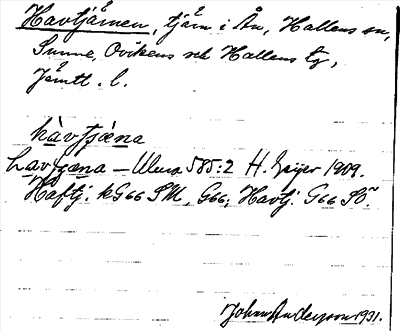 Havtjärnen, tjärn i Ån, Hallens sn,
Sunne, Ovikens och Hallens tg,
Jämtl. l.
hàvtjæna
havtjæna – Ulma 585:2 H. Geijer 1909.
Haftj. kG66 SM, G66; Havtj. G66 SO.
John Andersson 1931.